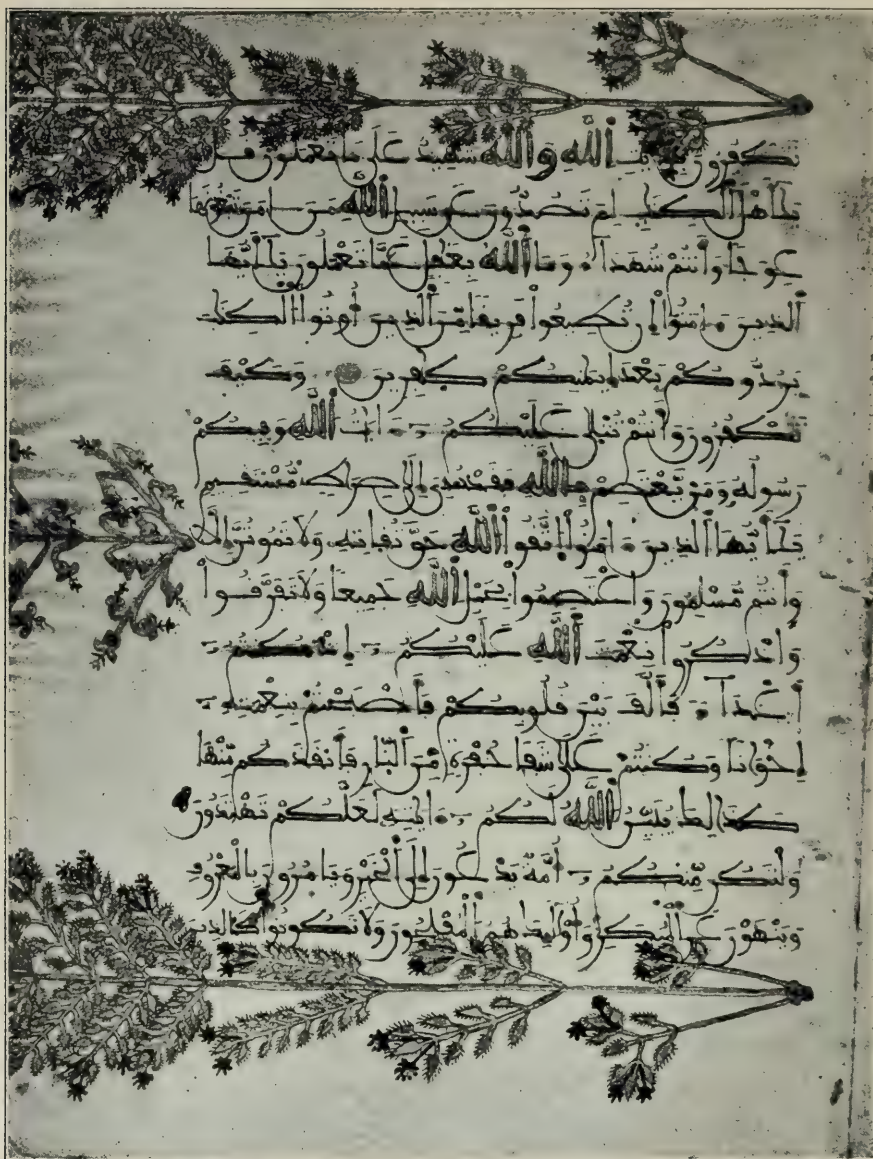 تَكْفُرُونَ بِـَٔايَٰتِ اللَّهِ وَاللَّهُ شَهِيدٌ عَلَىٰ مَا تَعْمَلُونَ قُلْ
يَٰٓأَهْلَ الْكِتَٰبِ لِمَ تَصُدُّونَ عَن سَبِيلِ اللَّهِ مَنْ ءَامَنَ تَبْغُونَهَا
عِوَجًا وَأَنتُمْ شُهَدَآءُ وَمَا اللَّهُ بِغَٰفِلٍ عَمَّا تَعْمَلُونَ يَٰٓأَيُّهَا
الَّذِينَ ءَامَنُوٓا إِن تُطِيعُوا فَرِيقًا مِّنَ الَّذِينَ أُوتُوا الْكِتَٰبَ
يَرُدُّوكُم بَعْدَ إِيمَٰنِكُمْ كَٰفِرِينَ وَكَيْفَ
تَكْفُرُونَ وَأَنتُمْ تُتْلَىٰ عَلَيْكُمُ ءَايَٰتُ اللَّهِ وَفِيكُمْ
رَسُولُهُ وَمَن يَعْتَصِم بِاللَّهِ فَقَدْ هُدِيَ إِلَىٰ صِرَٰطٍ مُّسْتَقِيمٍ
يَٰٓأَيُّهَا الَّذِينَ ءَامَنُوا اتَّقُوا اللَّهَ حَقَّ تُقَاتِهِ وَلَا تَمُوتُنَّ إِلَّا
وَأَنتُم مُّسْلِمُونَ وَاعْتَصِمُوا بِحَبْلِ اللَّهِ جَمِيعًا وَلَا تَفَرَّقُوا
وَاذْكُرُوا نِعْمَتَ اللَّهِ عَلَيْكُمُ إِذْ كُنتُمُ
أَعْدَآءً فَأَلَّفَ بَيْنَ قُلُوبِكُمْ فَأَصْبَحْتُم بِنِعْمَتِهِ
إِخْوَٰنًا وَكُنتُمْ عَلَىٰ شَفَا حُفْرَةٍ مِّنَ النَّارِ فَأَنقَذَكُم مِّنْهَا
كَذَٰلِكَ يُبَيِّنُ اللَّهُ لَكُمُ ءَايَٰتِهِ لَعَلَّكُمْ تَهْتَدُونَ
وَلْتَكُن مِّنكُمُ أُمَّةٌ يَدْعُونَ إِلَى الْخَيْرِ وَيَامُرُونَ بِالْمَعْرُوفِ
وَيَنْهَوْنَ عَنِ الْمُنكَرِ وَأُوْلَٰٓئِكَ هُمُ الْمُفْلِحُونَ وَلَا تَكُونُوا كَالَّذِينَ